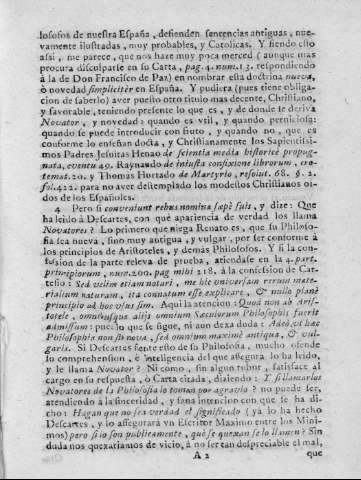 losofos de nuestra España, defienden sentencias antiguas, nue-
vamente ilustradas, muy probables, y Catolicas. Y siendo esto
assi, me parece, que nos haze muy poca merced (aunque mas
procura disculparse en su Carta, pag. 4. num. 13. respondiendo
à la de Don Francisco de Paz) en nombrar esta doctrina nueva,
ò novedad simpliciter en España. Y pudiera (pues tiene obliga-
cion de saberlo) aver puesto otro titulo mas decente, Christiano,
y favorable, teniendo presente lo que es, y de donde se deriva
Novator, y novedad: quando es vil, y quando perniciosa:
quando se puede introducir con fruto, y quando no, que es
conforme lo enseñan docta, y Christianamente los Sapientissi-
mos Padres Jesuitas Henao de scientia media historicè propug-
nata, eventu 49. Raynaudo de iniusta confixione librorum, ero-
temat. 20. y Thomàs Hurtado de Martyrio, resolut. 68. §. 2.
fol. 422. para no aver destemplado los modestos Christianos oi-
dos de los Españoles.
4 Pero si conveniunt rebus nomina sæpè suis, y dize: Que
ha leido à Descartes, con què apariencia de verdad los llama
Novatores? Lo primero que niega Renato es, que su Philoso-
fia sea nueva, sino muy antigua, y vulgar, por ser conforme à
los principios de Aristoteles, y demàs Philosofos. Y si la con-
fession de la parte releva de prueba, atiendase en la 4. part.
principiorum, num. 200. pag. mihi 218. à la confession de Car-
tesio: Sed velim etiam notari, me hic universam rerum mate-
rialium naturam, ita conatum esse explicare, & nullo planè
principio ad hoc usus sim. Aqui la atencion: Quod non ab Aris-
totele, omnibusque alijs omnium Sæculorum Philosophis fuerit
admissum: puedo que se sigue, ni aun dexa duda: Adeò, ut hæc
Philosophia non sit nova, sed omnium maximè antiqua, & vul-
garis. Si Descartes siente esto de su Philosofia, mucho ofende
lo comprehension, è inteligencia del que assegura lo ha leido,
y le llama Novator? Ni como, sin algun rubor, satisface al
cargo en su respuesta, ò Carta citada, diziendo: Y si llamarlos
Novatores de la Philosofia lo toman por agravio? no puede ser,
atendiendo à la sinceridad, y sana intencion con que se ha di-
cho: Hagan que no sea verdad el significado (ya lo ha hecho
Descartes, y lo assegurarà un Escritor Maximo entre los Mini-
mos) pero si lo son publicamente, què se quexan se lo llamen? Sin
duda nos quexariamos de vicio, à no ser tan despreciable el mal,
A 2 que